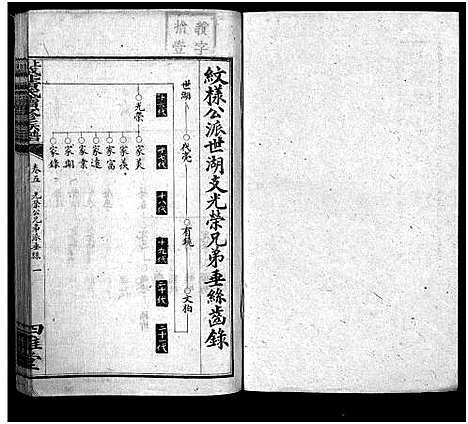 教字
拾壹
紋樣公派世湖支光榮兄弟垂絲齒錄
世湖
代亮
有琥
文柏
十六代
十七代
十八代
十九代
二十代
二十一代
光榮
家美
家義
家富
家遠
家業
家湖
家錄
卷五
光榮公兄弟派垂絲
一
四維堂